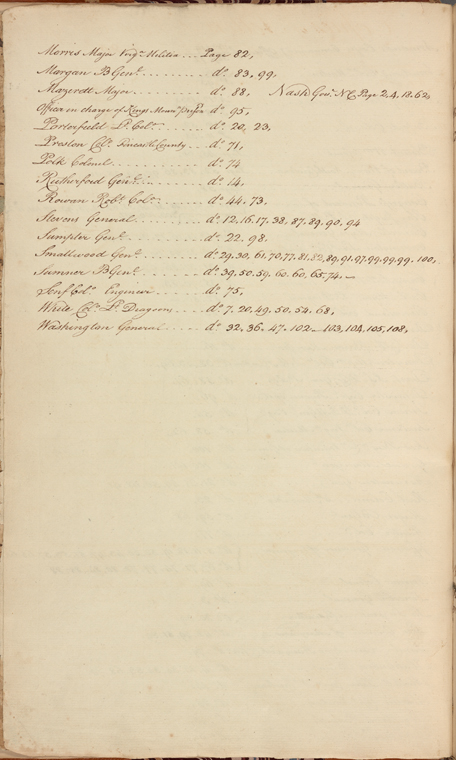 Morris Major Virg.ª Militia ... Page 82,
Morgan BGen.l ......... d.o 83, 99,
Mazerett Major ......... d.o 88, Nash Gov.r N C, Page 2, 4, 18, 62,
Officer in charge of Kings Moun.n Prison d.o 95,
Porterfield L.t Col.o ...... d.o 20, 23,
Preston Col.o Fincastle County .. d.o 71,
Polk Colonel ........... d.o 74
Rutherford Gen.l ........ d.o 14,
Rowan Rob.t Col.o ...... d.o 44, 73,
Stevens General ......... d.o 12, 16, 17, 38, 87, 89, 90, 94
Sumpter Gen.l ......... d.o 22, 98,
Smallwood Gen.l ....... d.o 29, 30, 61, 70, 77, 81, 82, 89, 91, 97, 99, 99, 99, 100,
Sumner BGen.l ......... d.o 39, 50, 59, 60, 60, 65, 74,
Senf Col.o Engineer ..... d.o 75,
White Col.o L.t Dragoons .... d.o 7, 20, 49, 50, 54, 68,
Washington General ..... d.o 32, 36, 47, 102, 103, 104, 105, 108,